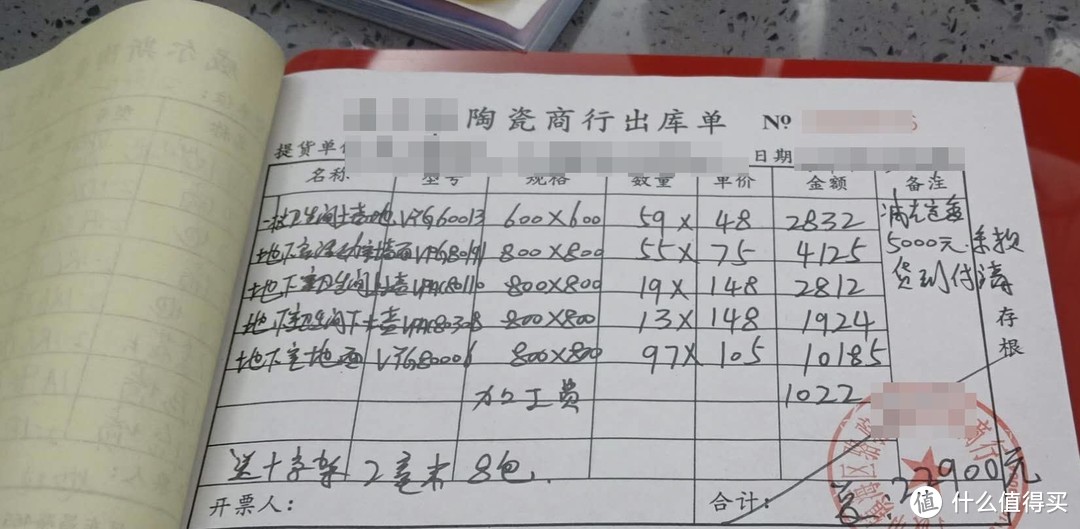 陶瓷商行出库单 №
提货单位 日期
名称 型号 规格 数量 单价 金额 备注
一楼卫生间墙地 VPG60013 600×600 59× 48 2832
地下室活动室墙面 800×800 55× 75 4125
地下室卫生间上墙 800×800 19× 148 2812
地下室卫生间下墙 800×800 13× 148 1924
地下室地面 800×800 97× 105 10185
5000元.余款
货到付清
加工费 1022
存根
送十字架 2毫米 8包.
开票人: 合计: 22900元
值 什么值得买